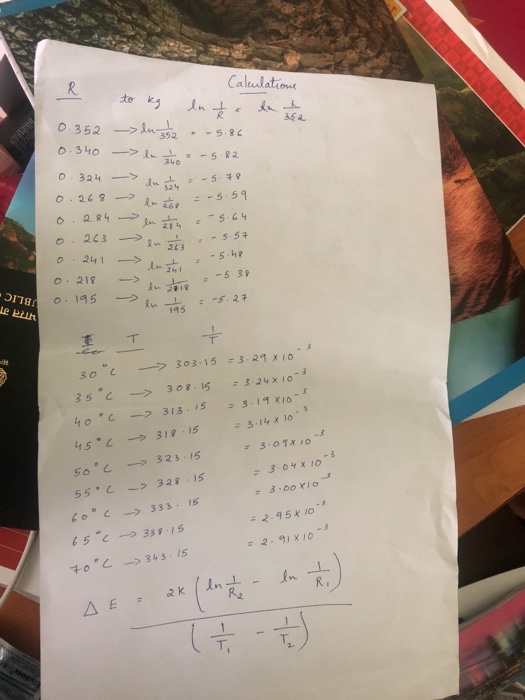 Calculations
R
to kg ln 1/R = ln 1/352
0.352 → ln 1/352 = -5.86
0.340 → ln 1/340 = -5.82
0.324 → ln 1/324 = -5.78
0.268 → ln 1/268 = -5.59
0.284 → ln 1/284 = -5.64
0.263 → ln 1/263 = -5.57
0.241 → ln 1/241 = -5.48
0.218 → ln 1/218 = -5.38
0.195 → ln 1/195 = -5.27
T 1/T
30°C → 303.15 = 3.29 × 10⁻³
35°C → 308.15 = 3.24 × 10⁻³
40°C → 313.15 = 3.19 × 10⁻³
45°C → 318.15 = 3.14 × 10⁻³
50°C → 323.15 = 3.09 × 10⁻³
55°C → 328.15 = 3.04 × 10⁻³
60°C → 333.15 = 3.00 × 10⁻³
65°C → 338.15 = 2.95 × 10⁻³
70°C → 343.15 = 2.91 × 10⁻³
ΔE = 2k (ln 1/R₂ - ln 1/R₁)
(1/T₁ - 1/T₂)